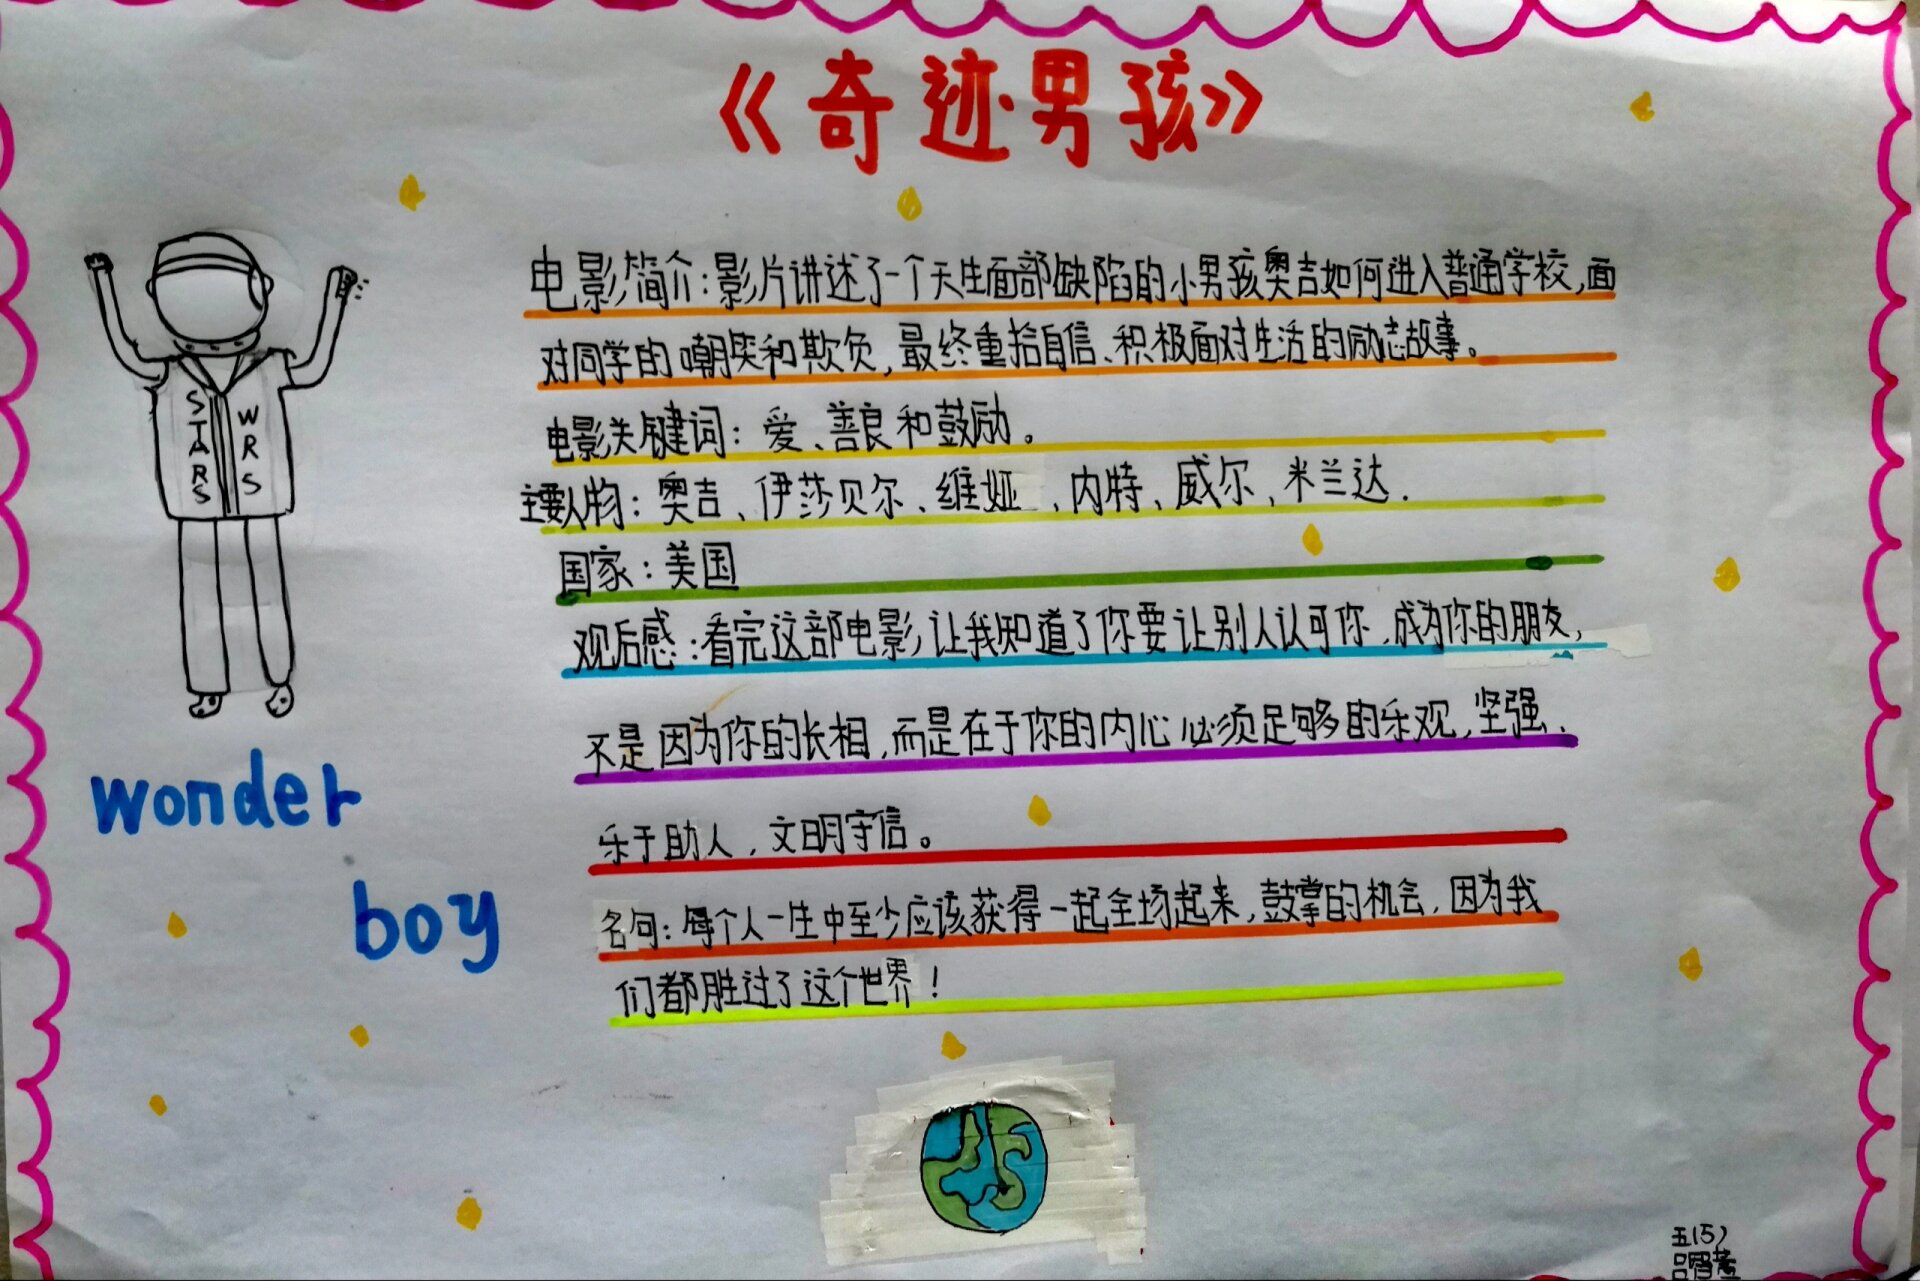 《奇迹男孩》
电影简介：影片讲述了一个天生面部缺陷的小男孩奥吉如何进入普通学校，面
对同学的嘲笑和欺负，最终重拾自信、积极面对生活的励志故事。
电影关键词：爱、善良和鼓励。
主要人物：奥吉、伊莎贝尔、维娅、内特、威尔、米兰达.
国家：美国
观后感：看完这部电影，让我知道了你要让别人认可你，成为你的朋友，
不是因为你的长相，而是在于你的内心必须足够的乐观，坚强、
乐于助人，文明守信。
名句：每个人一生中至少应该获得一起全场起来，鼓掌的机会，因为我
们都胜过了这个世界！
STARS
WRS
wonder
boy
五(5)